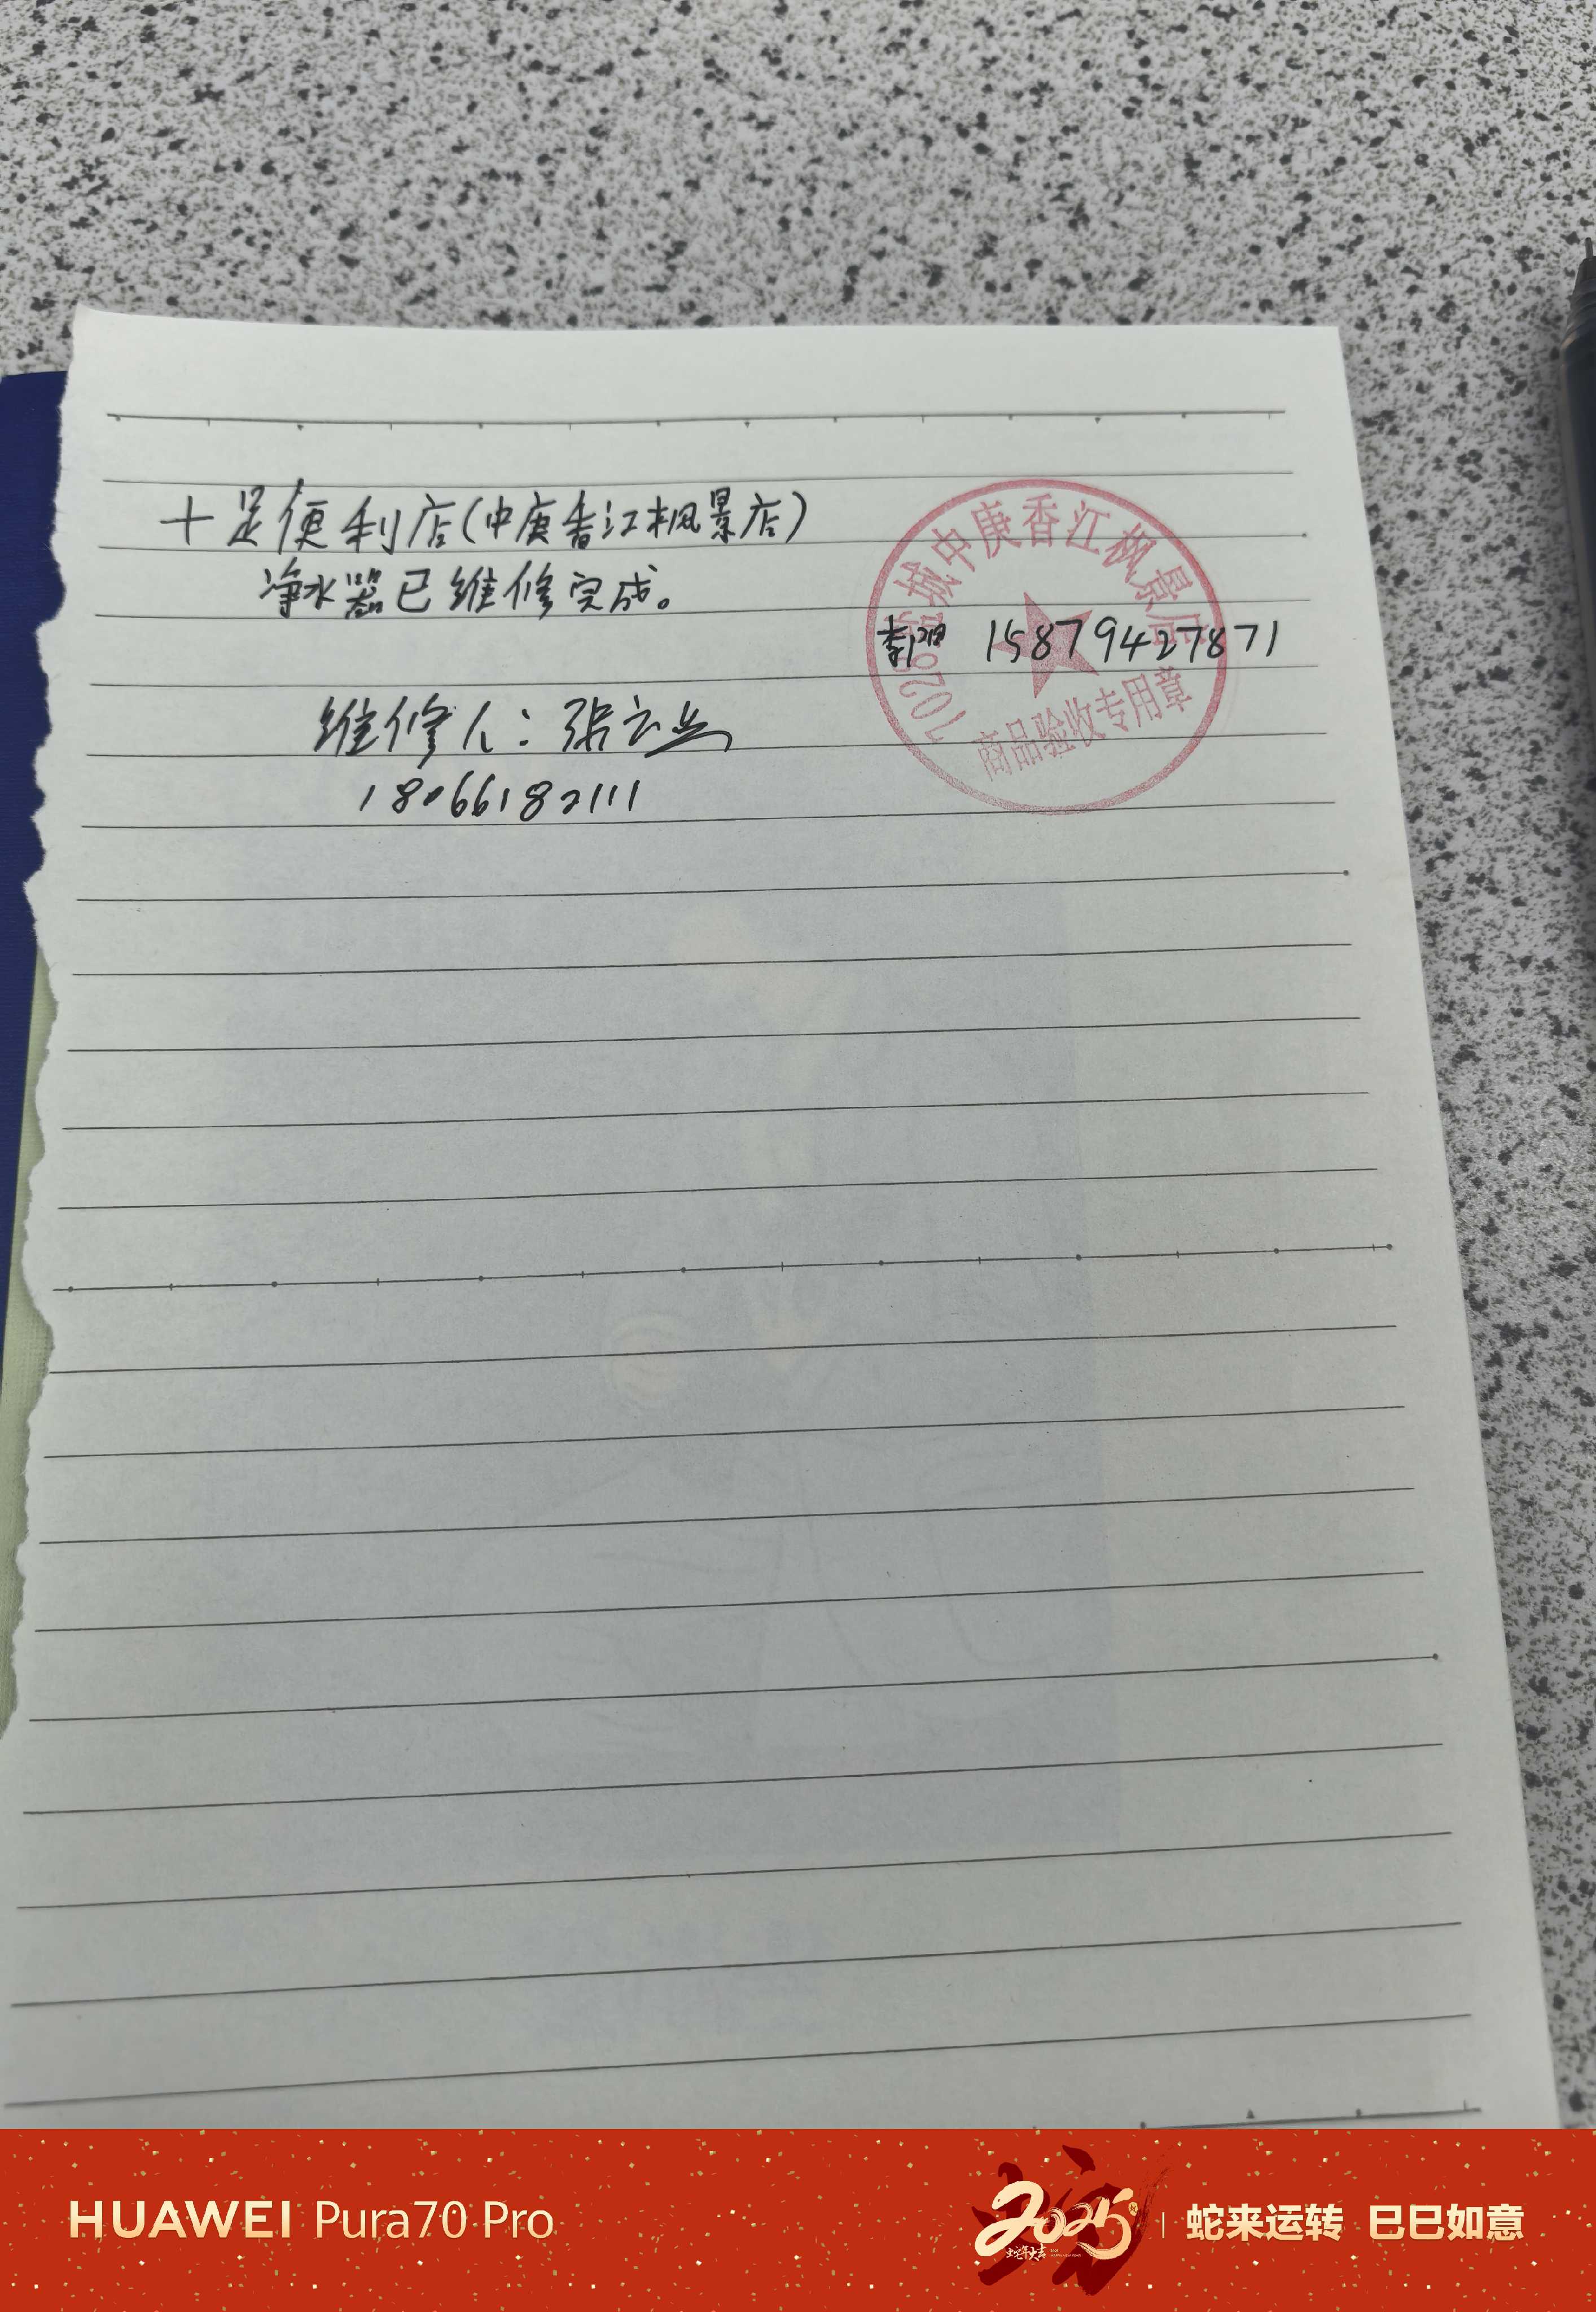 十足便利店(中庚香江枫景店)
净水器已维修完成。
城中庚香江枫景店
15879427871
商品验收专用章
维修人：张
18066182111
HUAWEI Pura70 Pro
2025
蛇来运转 巳巳如意